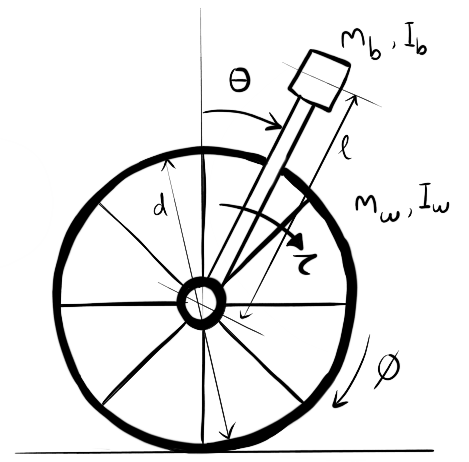 m_b, I_b
θ
l
d
m_w, I_w
τ
φ